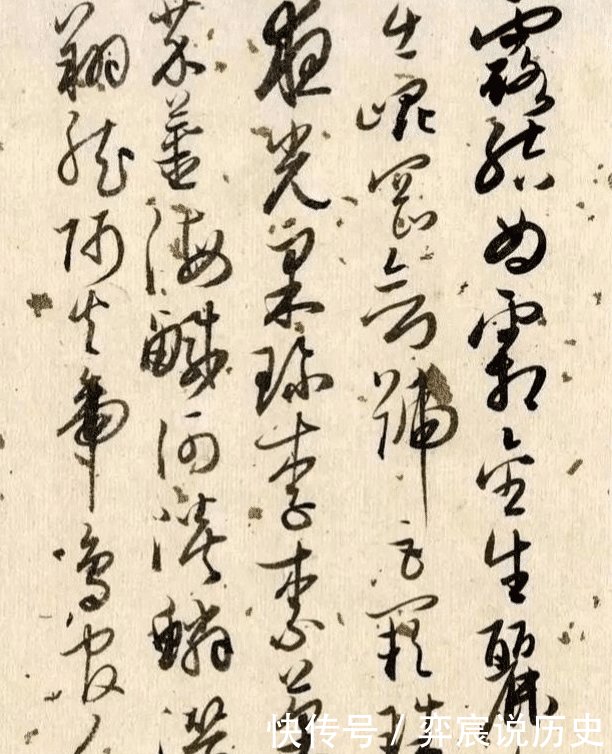 露結為霜金生麗
出崐岡劍號巨闕珠
夜光果珍李柰菜
芥薑海鹹河淡鱗潛
翔龍師火帝鳥官人
快传号 / 弈宸说历史